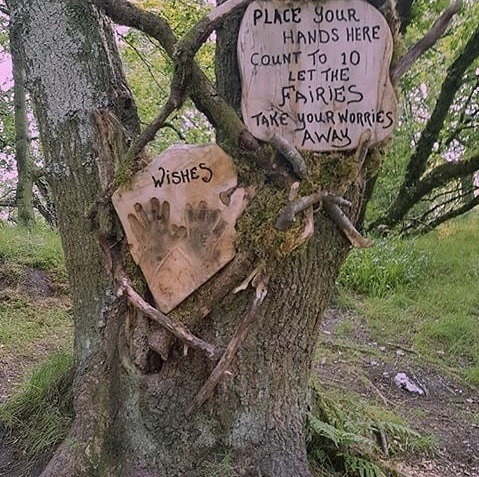 PLACE YOUR
HANDS HERE
COUNT TO 10
LET THE
FAIRIES
TAKE YOUR WORRIES
AWAY
WISHES